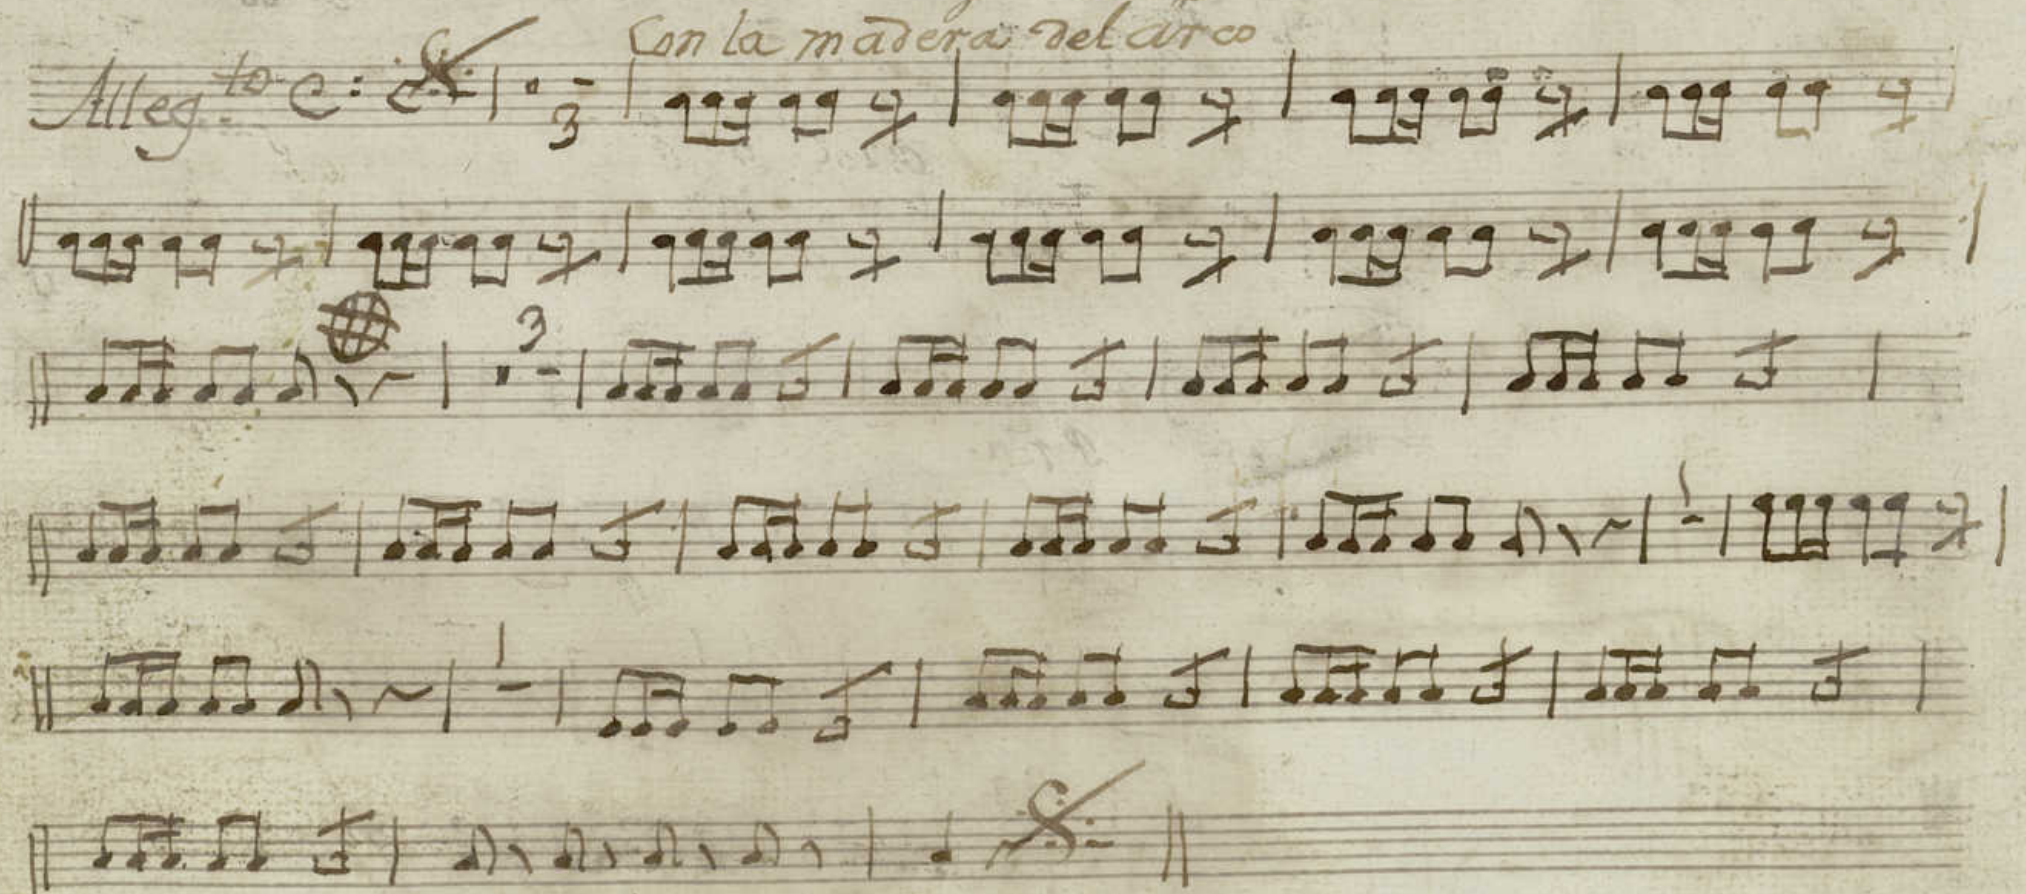 Con la madera del arco
Alleg.to
3
3